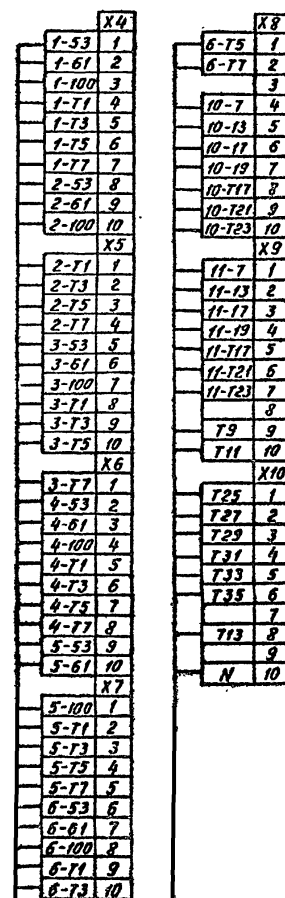 X4
1-53 1
1-61 2
1-100 3
1-T1 4
1-T3 5
1-T5 6
1-T7 7
2-53 8
2-61 9
2-100 10
X5
2-T1 1
2-T3 2
2-T5 3
2-T7 4
3-53 5
3-61 6
3-100 7
3-T1 8
3-T3 9
3-T5 10
X6
3-T7 1
4-53 2
4-61 3
4-100 4
4-T1 5
4-T3 6
4-T5 7
4-T7 8
5-53 9
5-61 10
X7
5-100 1
5-T1 2
5-T3 3
5-T5 4
5-T7 5
6-53 6
6-61 7
6-100 8
6-T1 9
6-T3 10
X8
6-T5 1
6-T7 2
3
10-7 4
10-13 5
10-17 6
10-19 7
10-T17 8
10-T21 9
10-T23 10
X9
11-7 1
11-13 2
11-17 3
11-19 4
11-T17 5
11-T21 6
11-T23 7
8
T9 9
T11 10
X10
T25 1
T27 2
T29 3
T31 4
T33 5
T35 6
7
T13 8
9
N 10